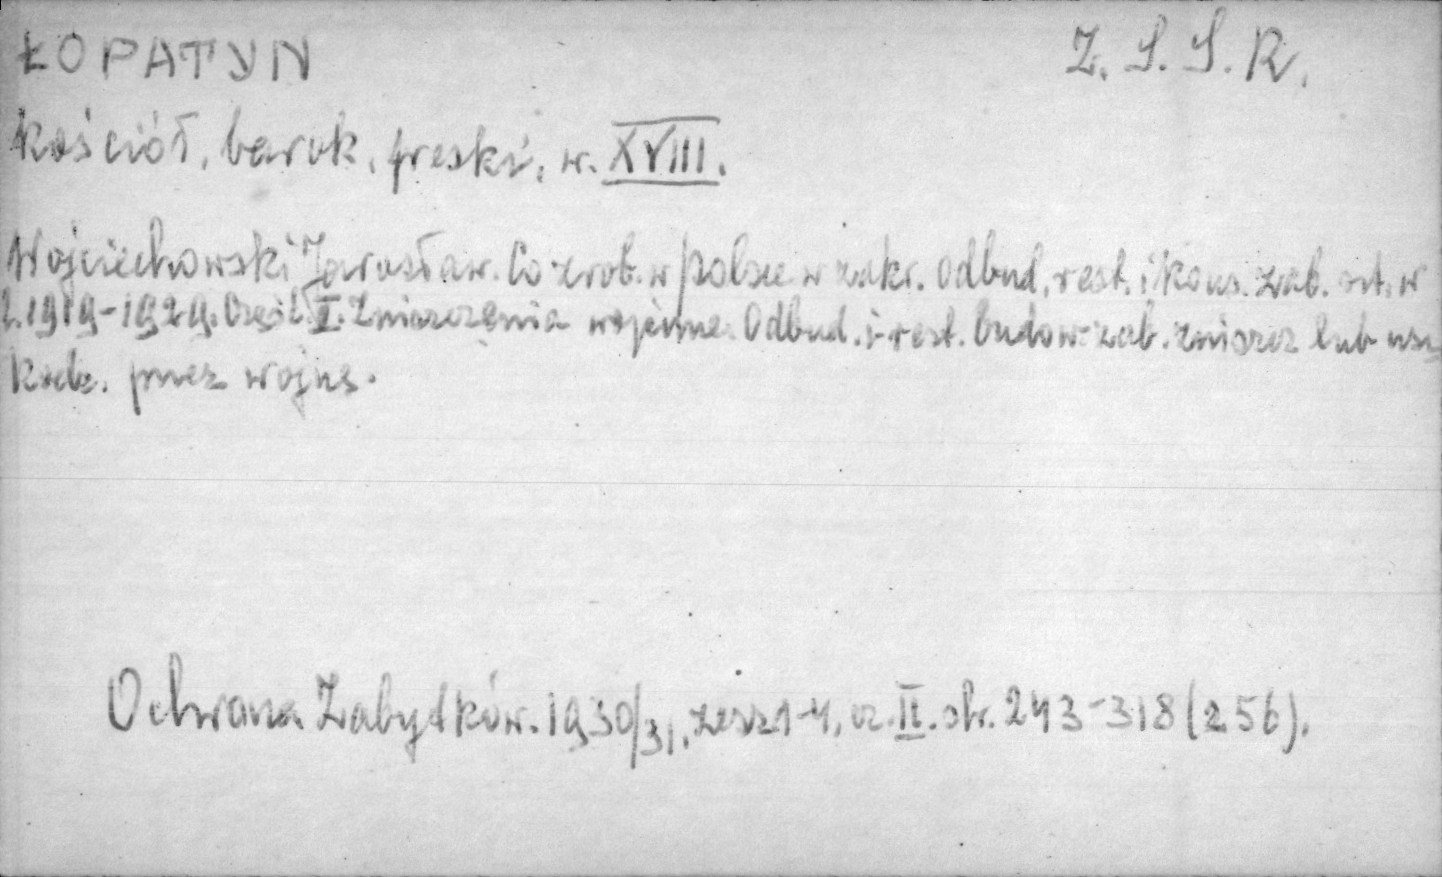 ŁOPATYN
Z. S. S. R.
Kościół, barok, freski, w. XVIII.
Wojciechowski Jarosław. Co zrob. w Polsce w zakr. odbud, rest. i kons. zab. szt. w
l. 1919-1929. Część II. Zniszczenia wojenne. Odbud. i rest. budow. zab. zniszcz lub usz
kodz. przez wojnę.
Ochrona Zabytków. 1930/31, zesz 1-4, cz. II. str. 243-318 (256).